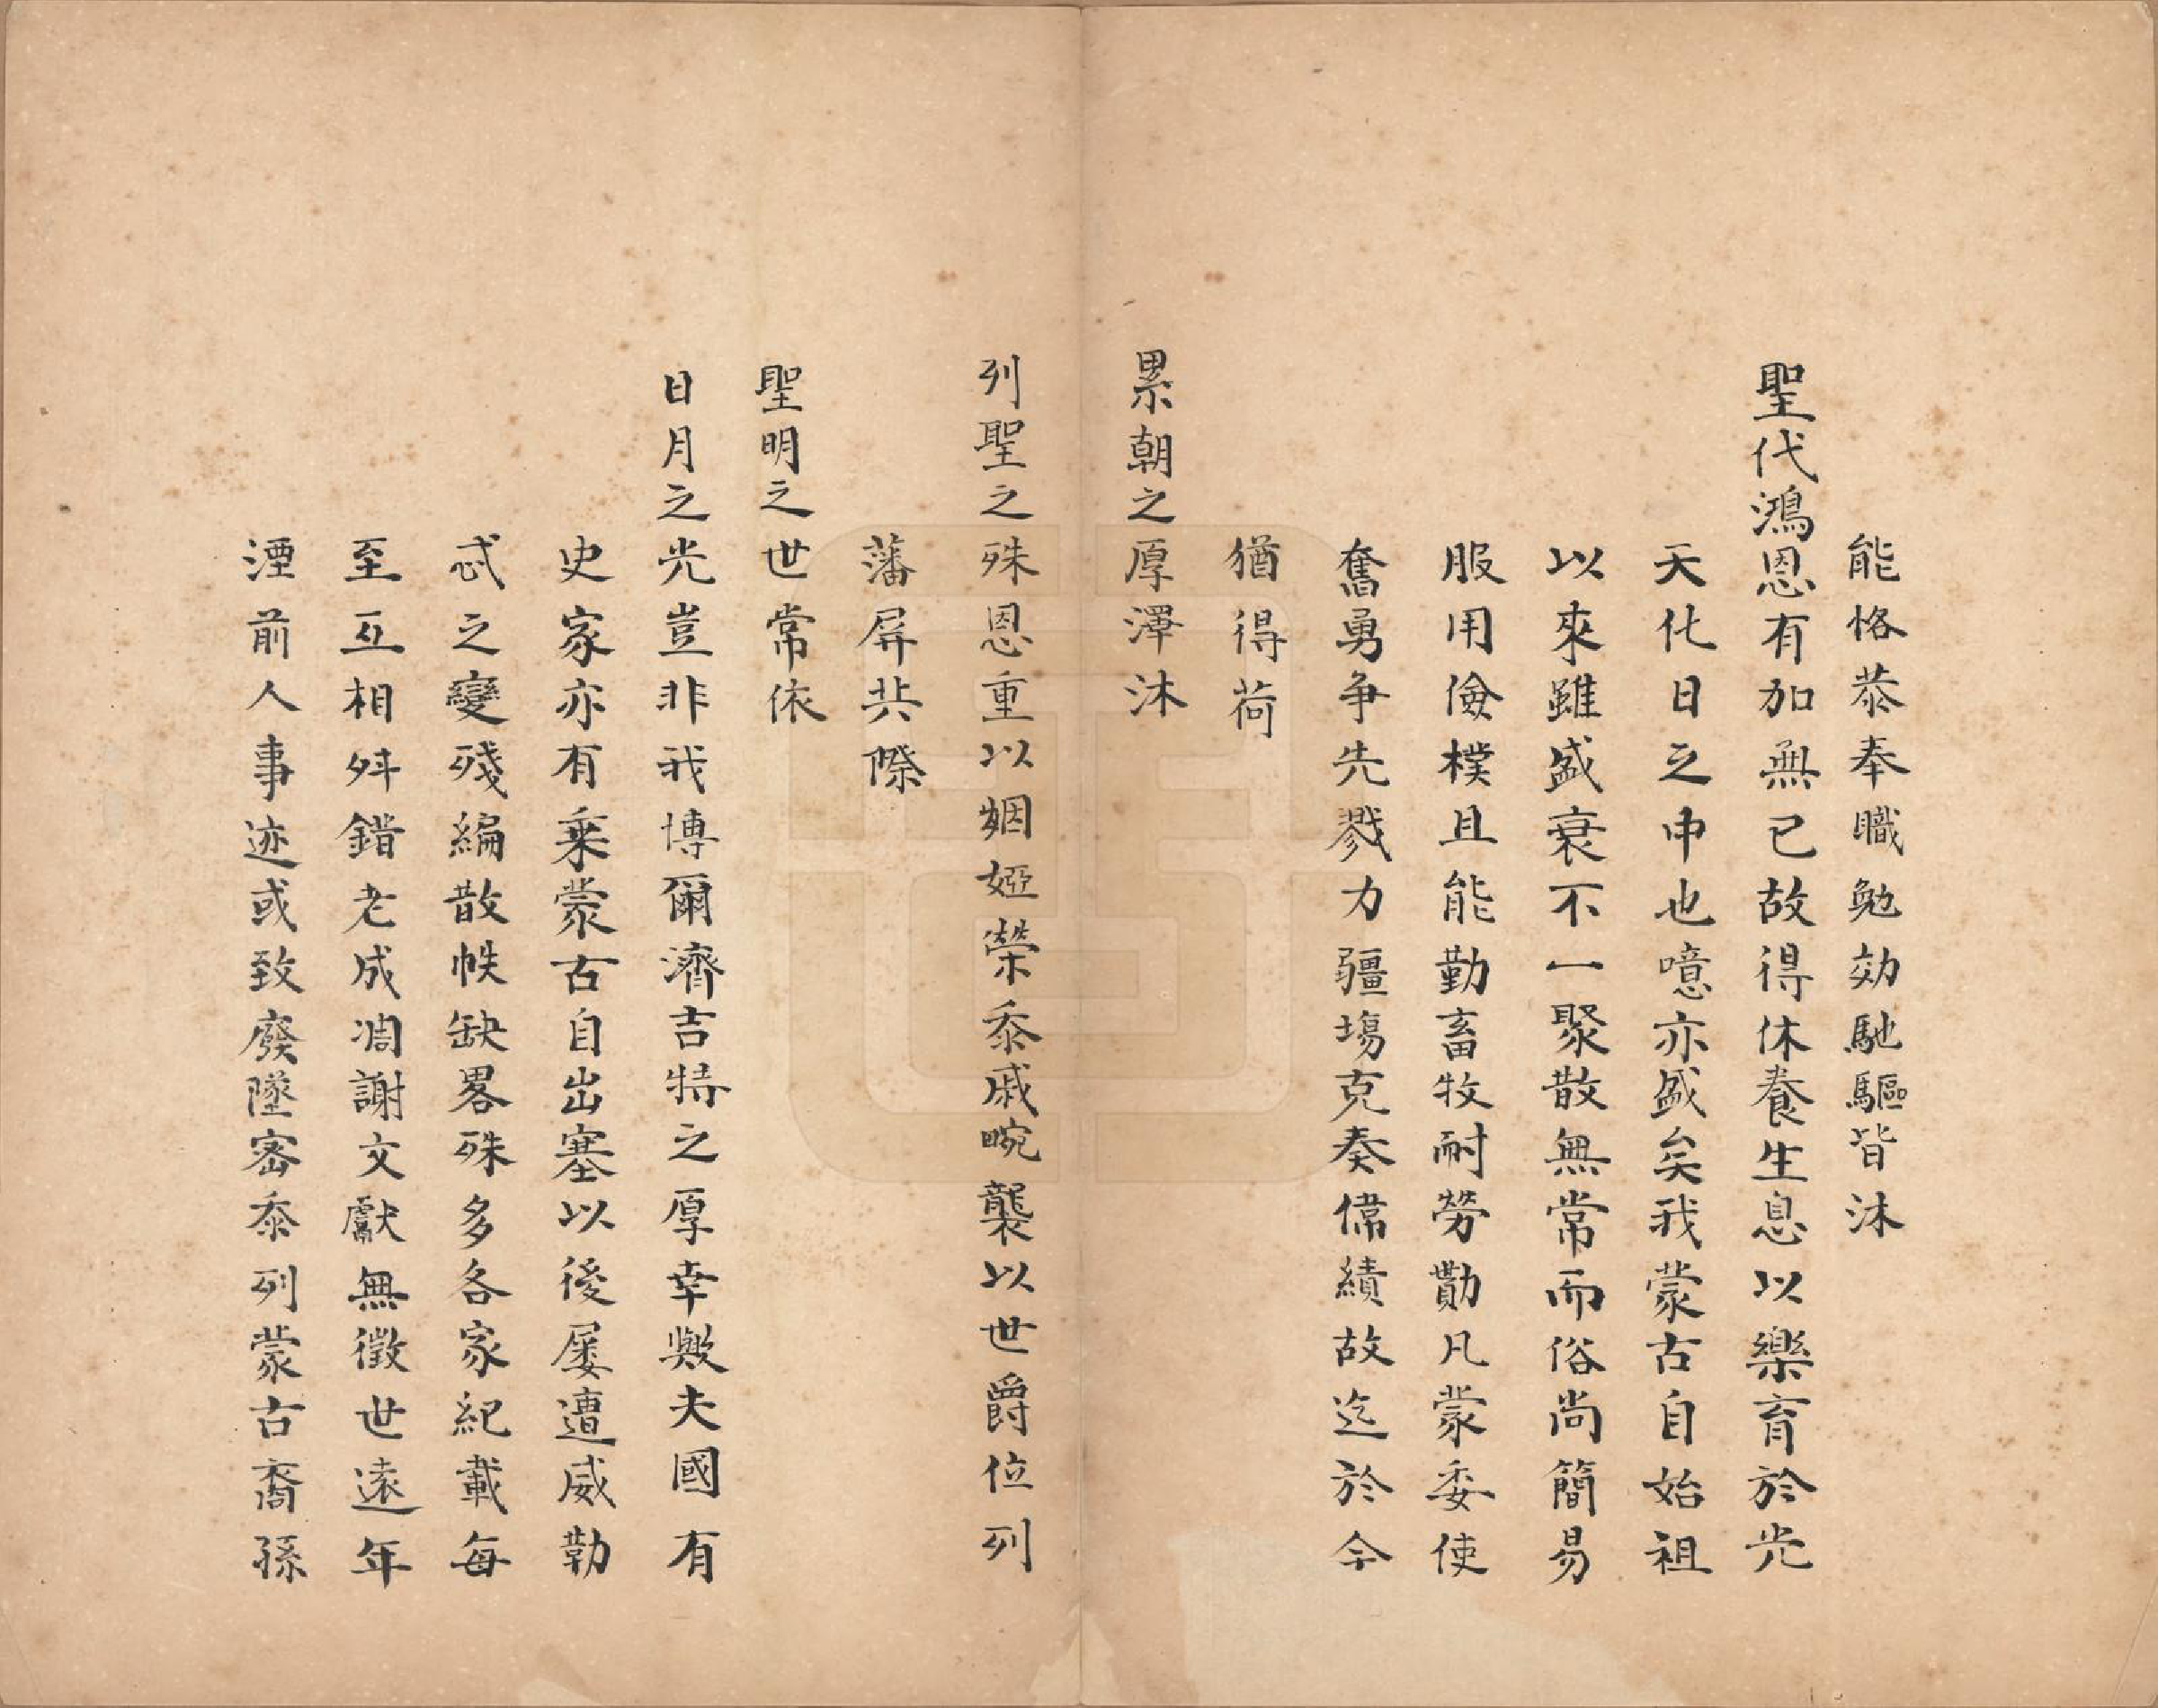 能恪恭奉職勉効馳驅皆沐
聖代鴻恩有加無已故得休養生息以樂育於光
天化日之中也噫亦盛矣我蒙古自始祖
以來雖盛衰不一聚散無常而俗尚簡易
服用儉樸且能勤畜牧耐勞勩凡蒙委使
奮勇争先戮力疆埸克奏偹績故迄於今
猶得荷
累朝之厚澤沐
列聖之殊恩重以姻婭榮忝戚畹襲以世爵位列
藩屏共際
聖明之世常依
日月之光豈非我博爾濟吉特之厚幸歟夫國有
史家亦有乗蒙古自出塞以後屡遭威勒
忒之變殘編散帙缺畧殊多各家紀載每
至互相舛錯老成凋謝文獻無徵世遠年
湮前人事迹或致廢墜宻忝列蒙古裔孫